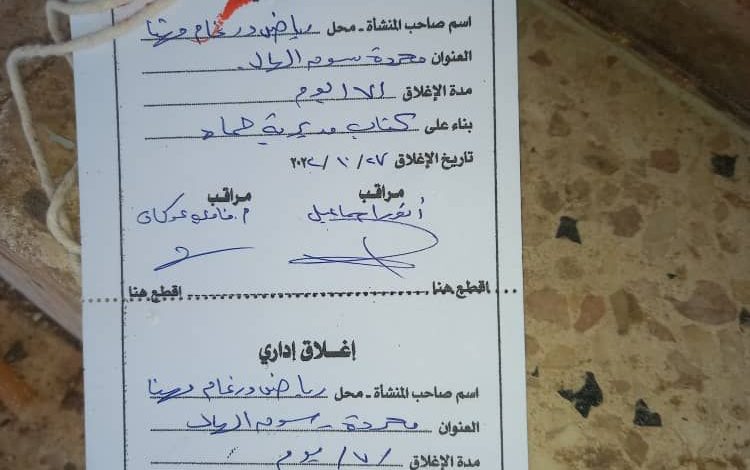 اسم صاحب المنشأة - محل رياض درغام مهنا
العنوان محردة سوق الهال
مدة الإغلاق /٧/ يوم
بناء على كتاب مديرية حماه
تاريخ الإغلاق ٢٧ / ١٠ / ٢٠٢٢
مراقب مراقب
اقطع هنا اقطع هنا
إغلاق إداري
اسم صاحب المنشأة - محل رياض درغام مهنا
العنوان محردة - سوق الهال
مدة الإغلاق /٧/ يوم